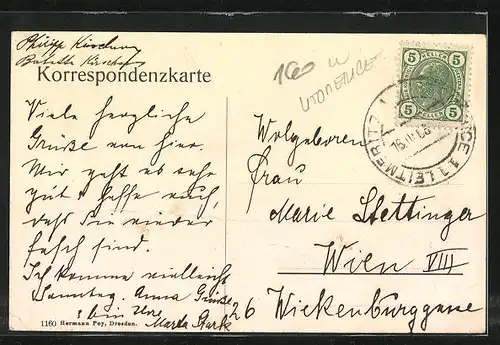 Philipp Kirschner
Babette
Korrespondenzkarte
160 w
LITOMERICE
5 HELLER 5
5 HELLER 5
LEITMERITZ 1
Viele herzliche
Grüße von hier.
Mir geht es sehr
gut, hoffe auch,
daß Sie wieder
fesch sind.
Ich komme vielleicht
Samstag. Anna Grüße
Marta Stark
Wolgeboren
Frau
Marie Stettinger
Wien VIII
26 Wickenburggasse
1160 Hermann Poy, Dresden.